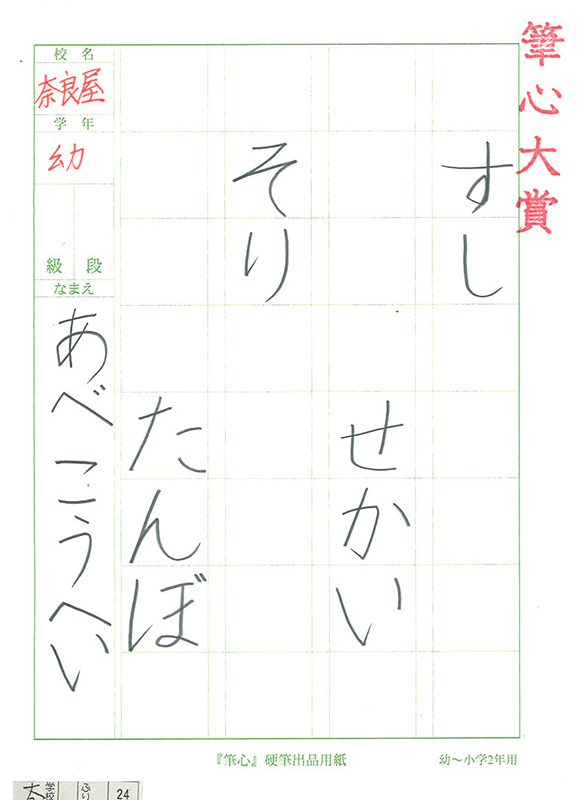 筆心大賞
すし
せかい
そり
たんぼ
校名
奈良屋
学年
幼
級 段
なまえ
あべこうへい
『筆心』硬筆出品用紙
幼〜小学2年用
学校
ふり
24